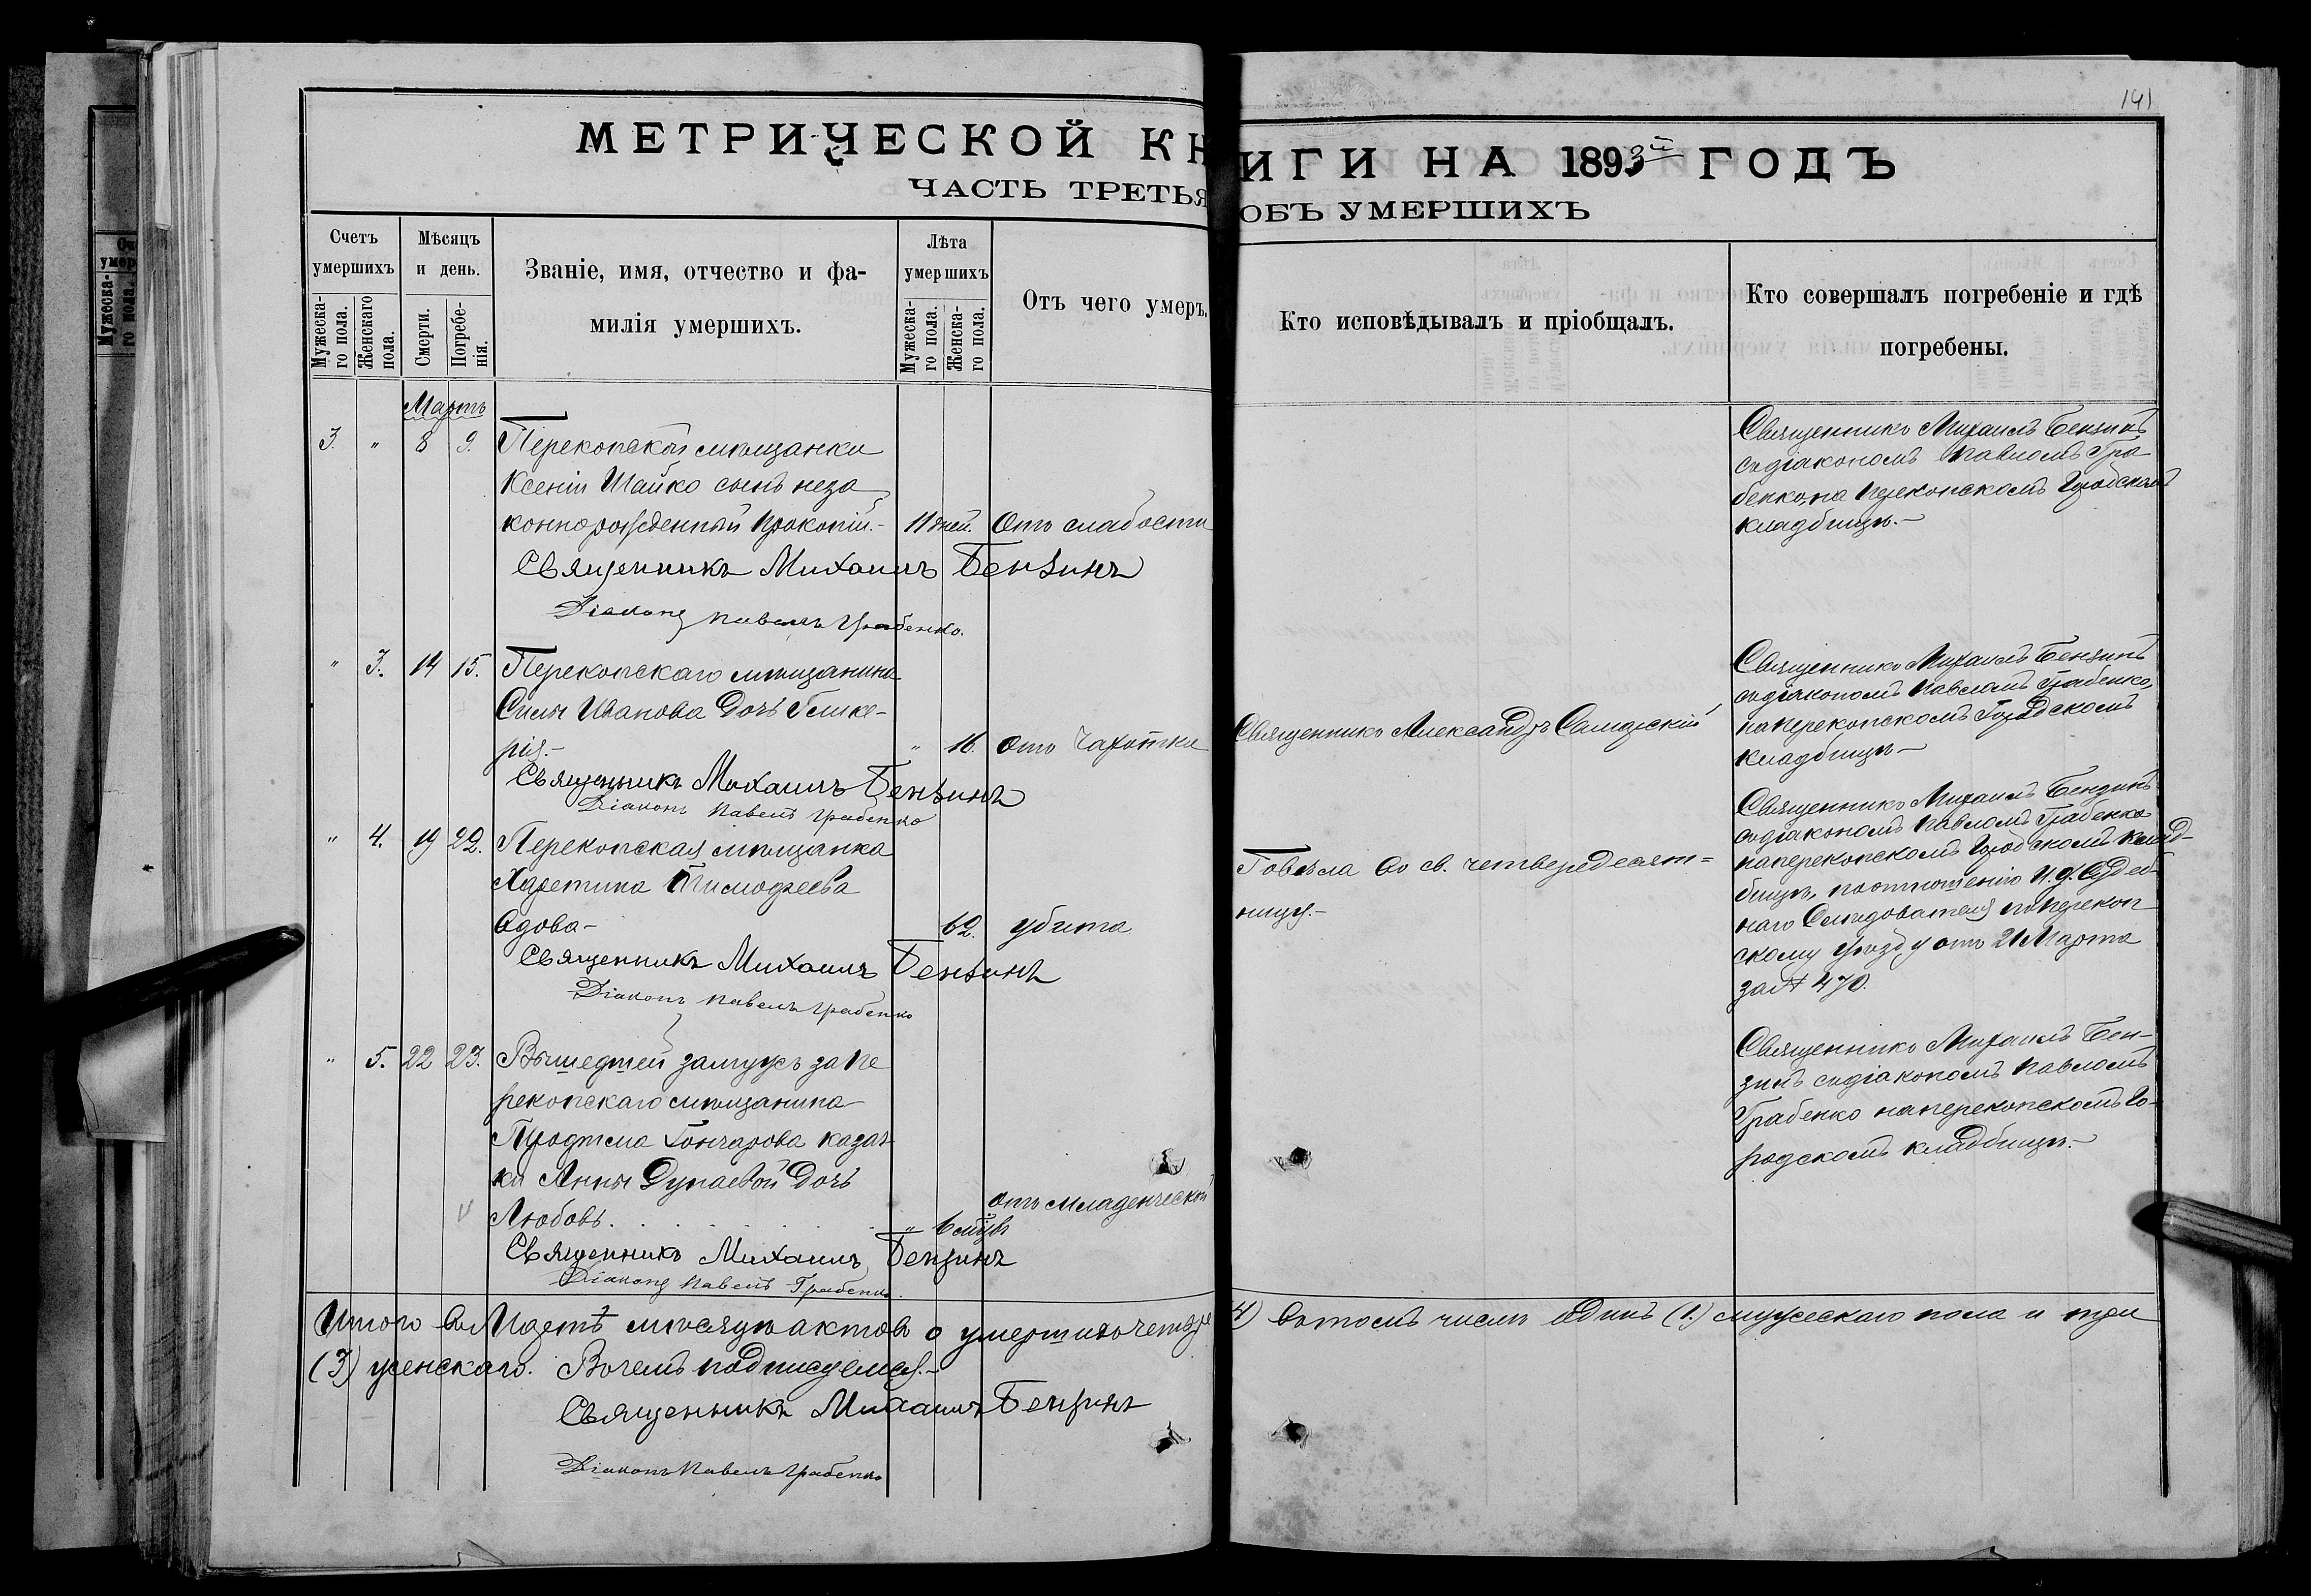 141
МЕТРИЧЕСКОЙ КНИГИ НА 1893й ГОДЪ
ЧАСТЬ ТРЕТЬЯ ОБЪ УМЕРШИХЪ
Счетъ умершихъ
Мужеска-
го пола.
Женскаго
пола.
Мѣсяцъ
и день.
Смерти.
Погребе-
нія.
Званіе, имя, отчество и фа-
милія умершихъ.
Лѣта
умершихъ
Мужеска-
го пола.
Женска-
го пола.
Отъ чего умеръ.
Кто исповѣдывалъ и пріобщалъ.
Кто совершалъ погребеніе и гдѣ
погребены.
Мартъ
3. " 8 9. Перекопской мѣщанки
Ксеніи Шайко сынъ неза
коннорожденный Прокопій.- 11 дней. Отъ слабости
Священникъ Михаилъ Бензинъ
Діаконъ Павелъ Грабенко.
Священникъ Михаилъ Бензинъ
съ діакономъ Павломъ Гра
бенко, на Перекопскомъ Городскомъ
кладбищѣ.-
" 3. 14 15. Перекопскаго мѣщанина
Силы Иванова дочь Глике-
рія.- " 16. Отъ чахотки
Священникъ Михаилъ Бензинъ
Діаконъ Павелъ Грабенко
Священникъ Александръ
Священникъ Михаилъ Бензинъ
съ діакономъ Павломъ Грабенко,
на Перекопскомъ Городскомъ
кладбищѣ-
" 4. 19 22. Перекопская мѣщанка
Харетина Тимофеева
вдова- 62. убита
Священникъ Михаилъ Бензинъ
Діаконъ Павелъ Грабенко
Говѣла во св. четыредесят=
ницу.-
Священникъ Михаилъ Бензинъ
съ діакономъ Павломъ Грабенко
на Перекопскомъ Городскомъ клад-
бищѣ, по отношенію И.д. Судеб-
наго Слѣдователя по Перекоп
скому уѣзду отъ 21 Марта
за № 470.
" 5. 22 23. Вышедшей замужъ за Пе
рекопскаго мѣщанина
Гончарова казач
ки Анны Дунаевой дочь
Любовь. " 6 мѣцв отъ младенческой
Священникъ Михаилъ Бензинъ
Діаконъ Павелъ Грабенко.
Священникъ Михаилъ Бен-
зинъ съ діакономъ Павломъ
Грабенко на Перекопскомъ Го-
родскомъ кладбищѣ.-
Итого въ Мартѣ мѣсяцѣ актовъ о умершихъ четыре 4) въ томъ числѣ одинъ (1.) мужескаго пола и три
(3) женскаго. Въ чемъ подписуемся.-
Священникъ Михаилъ Бензинъ
Діаконъ Павелъ Грабенко